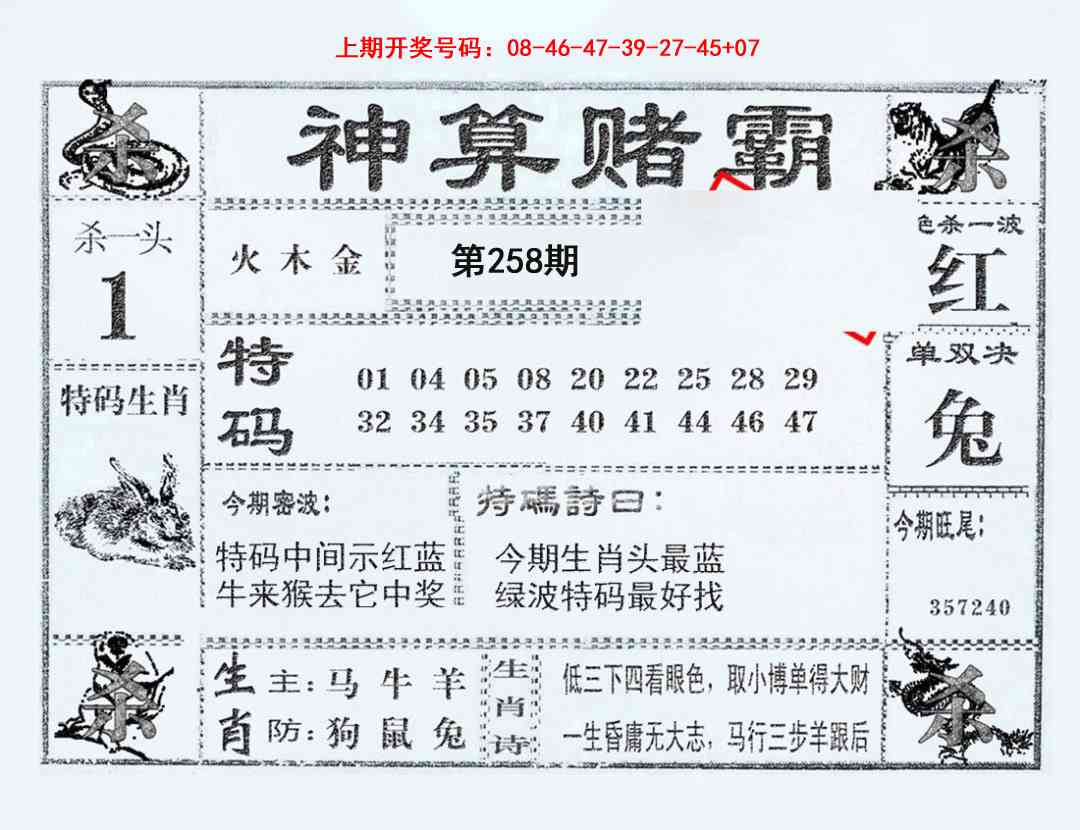 上期开奖号码：08-46-47-39-27-45+07
杀
神算赌霸
杀
杀一头
1
火木金
第258期
色杀一波
红
特码
01 04 05 08 20 22 25 28 29
32 34 35 37 40 41 44 46 47
单双决
兔
特码生肖
今期密波：
特码中间示红蓝
牛来猴去它中奖
特碼詩曰：
今期生肖头最蓝
绿波特码最好找
今期旺尾：
357240
杀
生肖
主：马牛羊
防：狗鼠兔
生肖诗
低三下四看眼色，取小博单得大财
一生昏庸无大志，马行三步羊跟后
杀